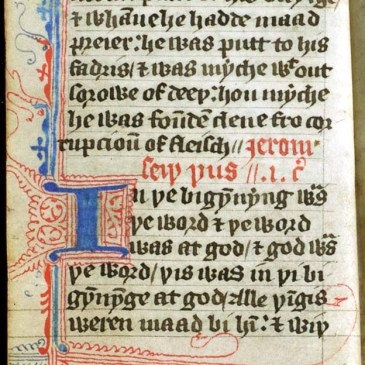 & whāne he hadde maad
preier: he was putt to his
fadris/ & was myche wᵗ out
sorowe of deeþ: hou myche
he was foūde clene fro cor
rupcioū of fleisch // Jerom
seiþ þus // .i. c̄
In þe bigȳnyng wᵃˢ
þe word & þe word
was at god/ & god wᵃˢ
þe word/ þis was in þͤ bi
gȳnynge at god/ Alle þīgis
weren maad bi hī: & wiþ